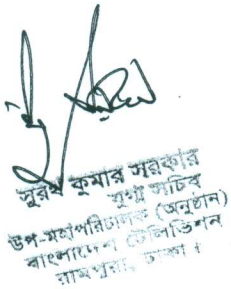 সুরথ কুমার সরকার
যুগ্ম সচিব
উপ-মহাপরিচালক (অনুষ্ঠান)
বাংলাদেশ টেলিভিশন
রামপুরা, ঢাকা।